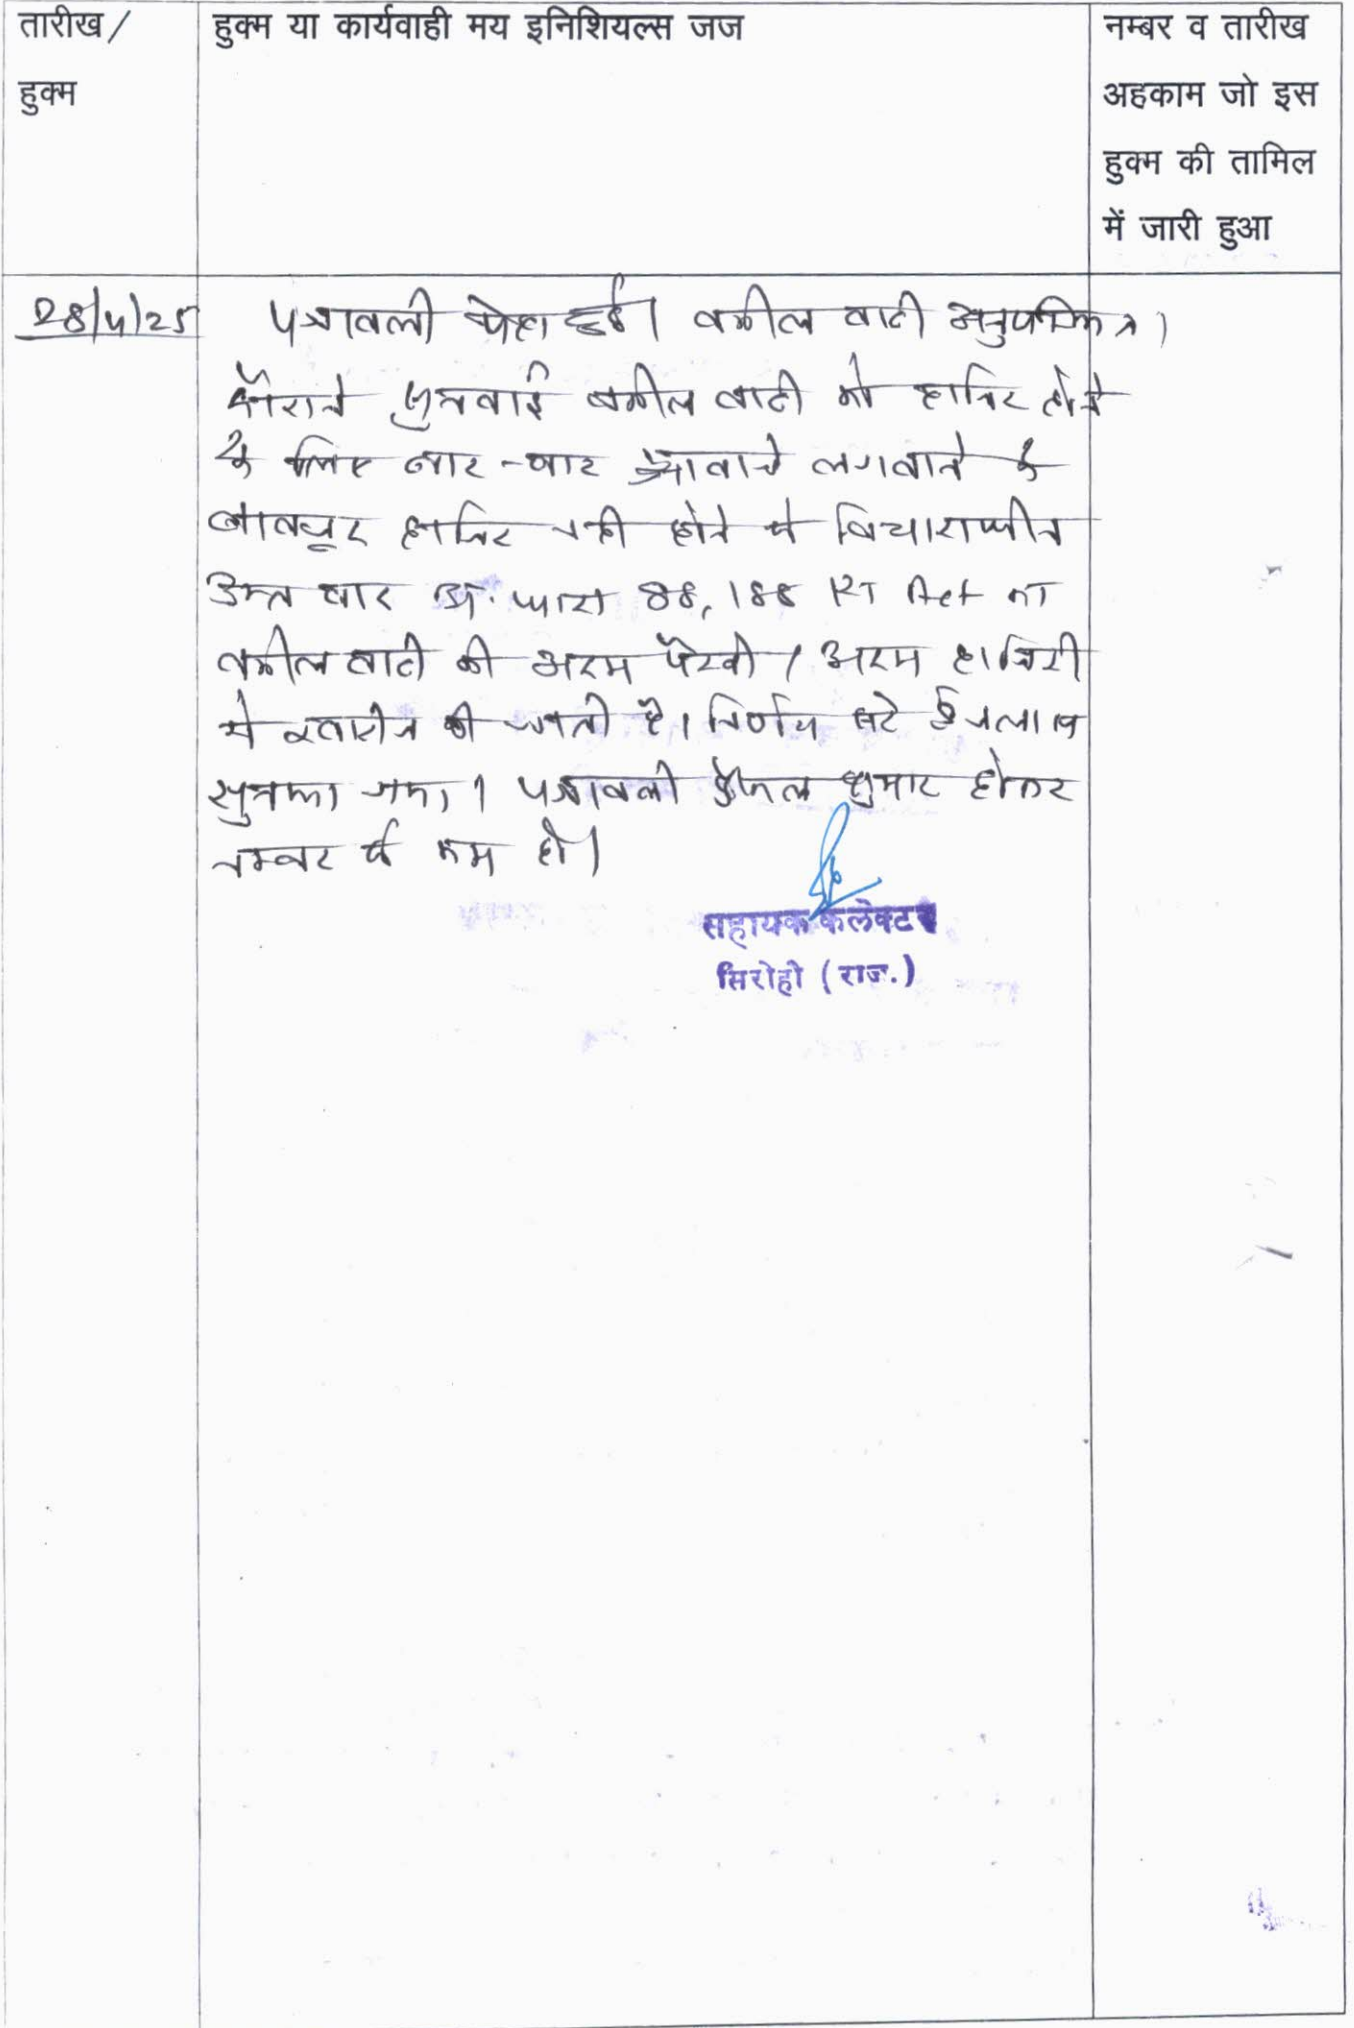 तारीख/
हुक्म
हुक्म या कार्यवाही मय इनिशियल्स जज
नम्बर व तारीख
अहकाम जो इस
हुक्म की तामिल
में जारी हुआ
28/4/25
पत्रावली पेश हुई। वकील वादी अनुपस्थित।
दौराने सुनवाई वकील वादी को हाजिर होने
के लिए बार-बार आवाजे लगवाने के
बावजूद हाजिर नही होने से विचाराधीन
उक्त वाद अ. धारा 88, 188 RT Act का
वकील वादी की अदम पैरवी / अदम हाजिरी
मे खारीज की जाती है। निर्णय सरे ईजलास
सुनाया गया। पत्रावली फैसल शुमार होकर
नम्बर से कम हो।
सहायक कलेक्टर
सिरोही (राज.)